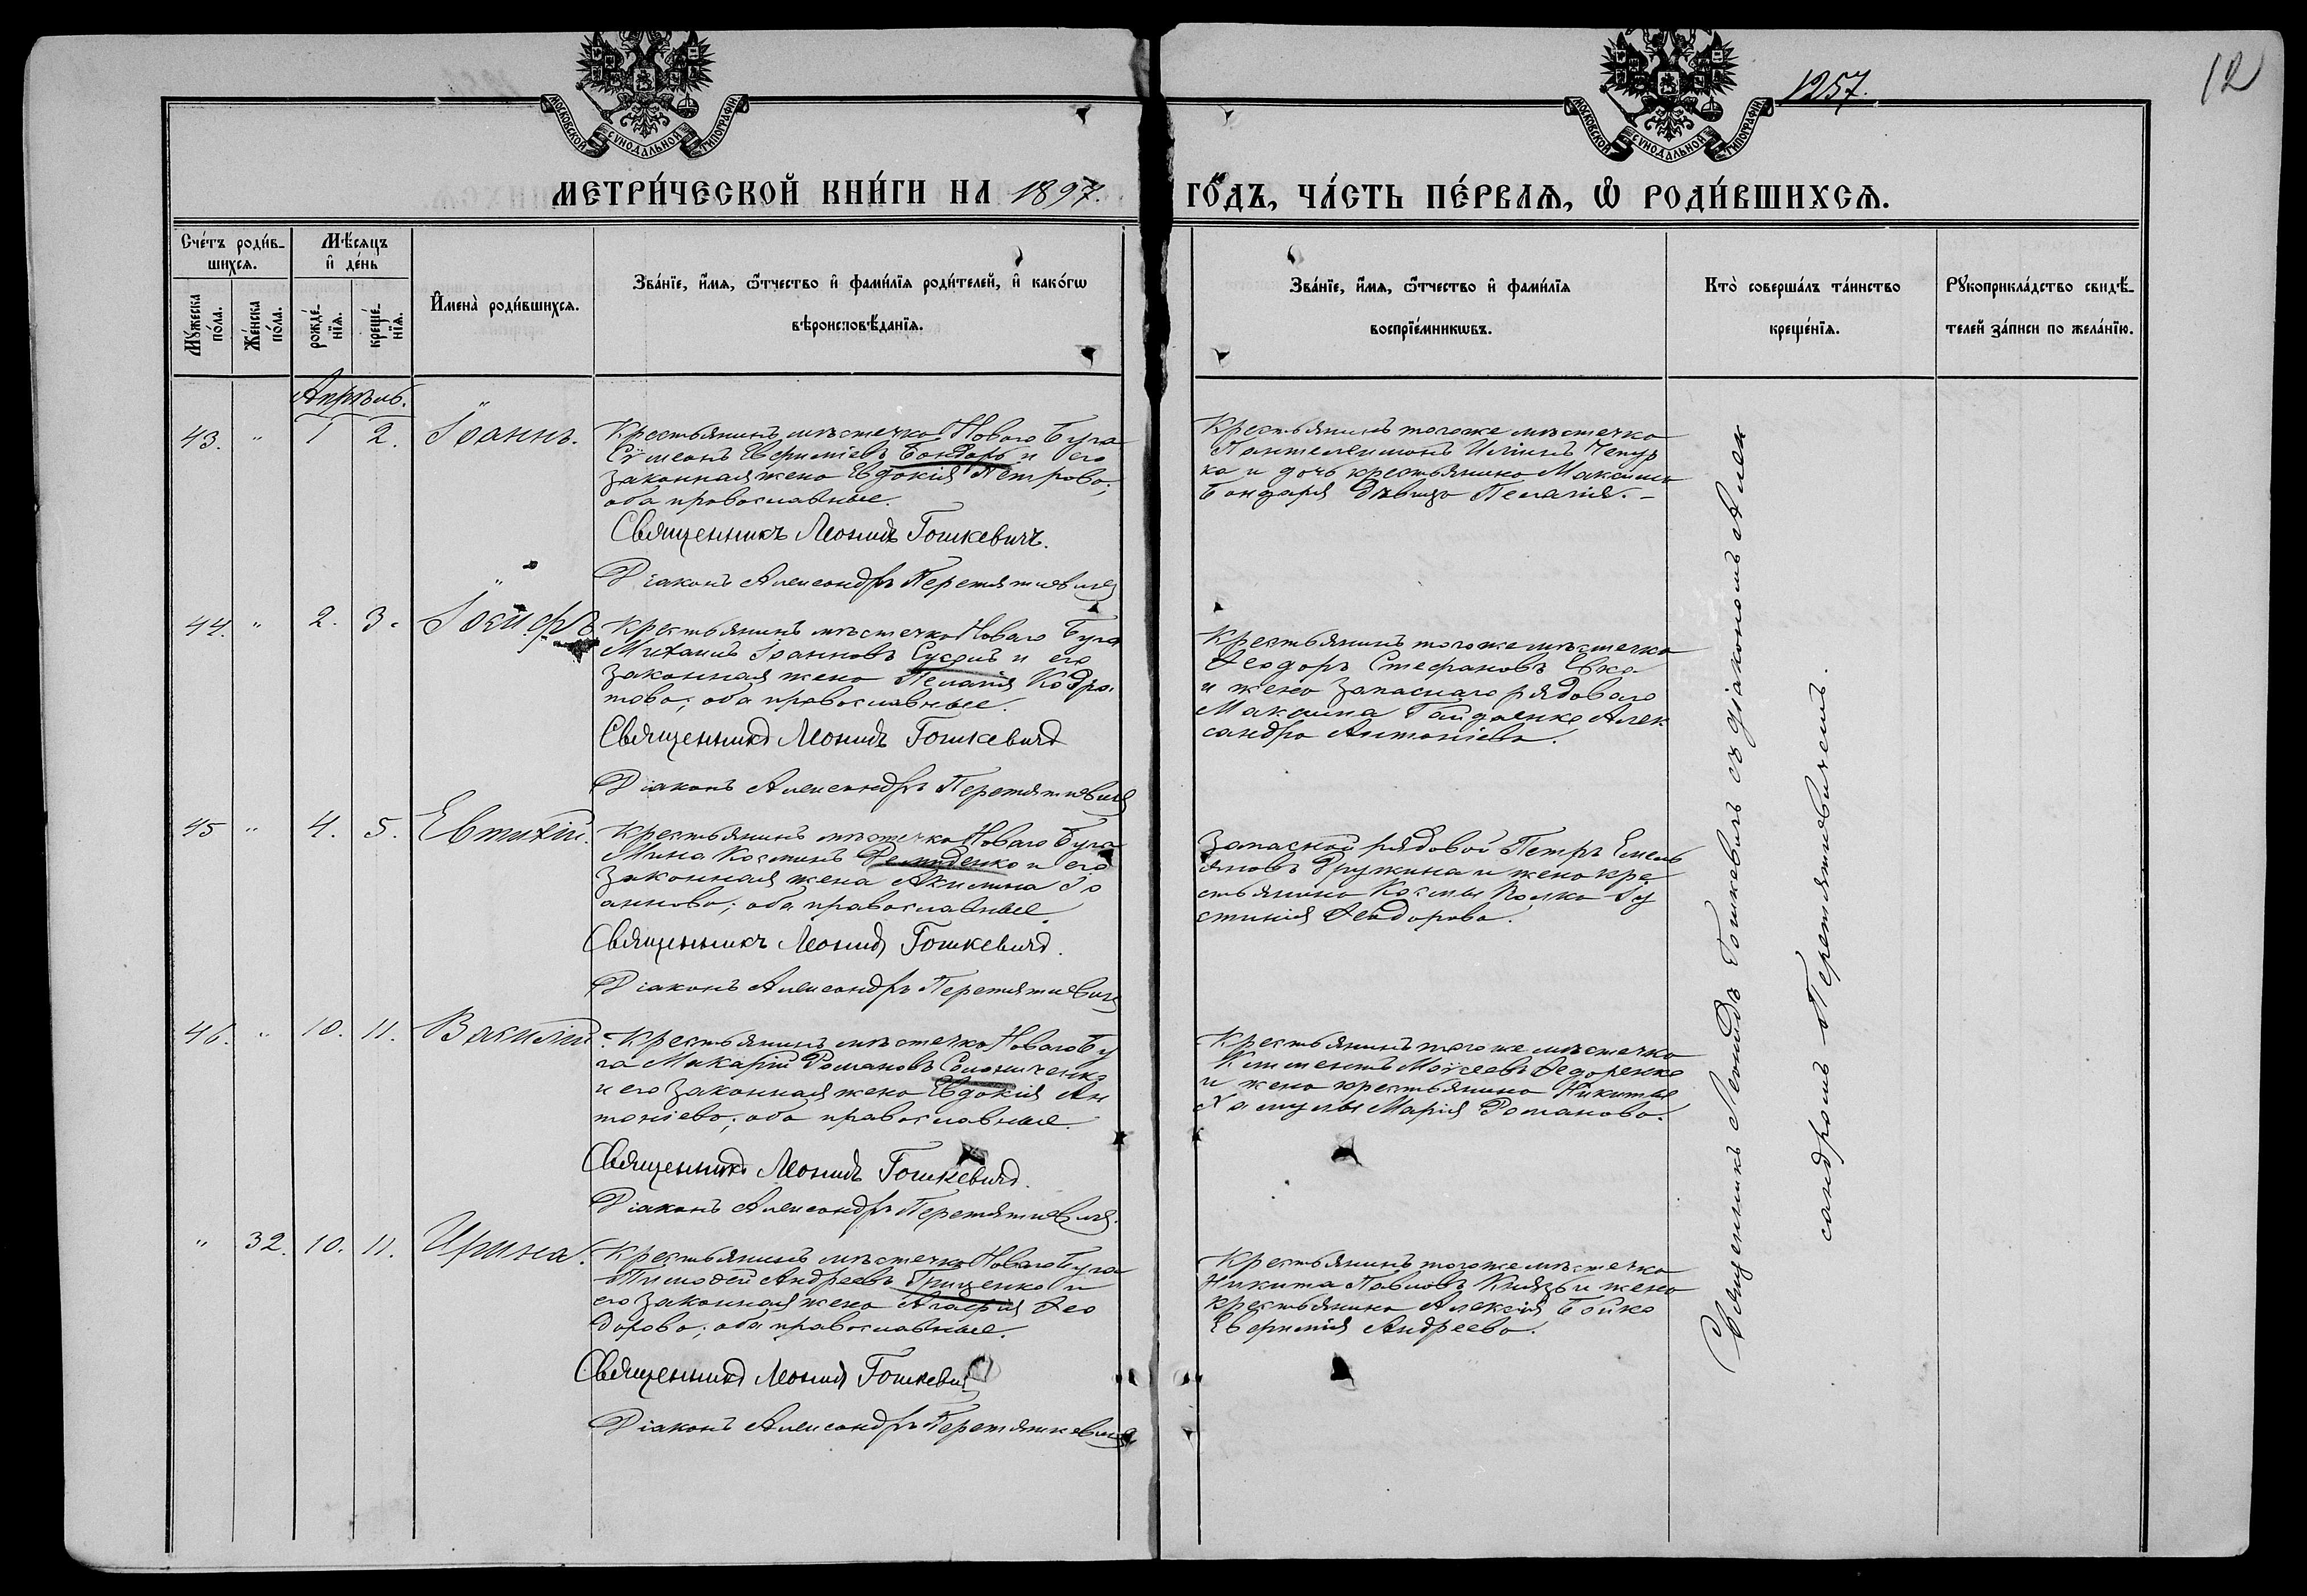 МОСКОВСКОЙ СѴНОДАЛЬНОЙ ТИПОГРАФІИ
МОСКОВСКОЙ СѴНОДАЛЬНОЙ ТИПОГРАФІИ
1257.
12
МЕТРИ́ЧЕСКОЙ КНИ́ГИ НА 1897. ГО́ДЪ, ЧА́СТЬ ПЕ́РВАѦ, Ѡ҆ РОДИ́ВШИХСѦ.
Сче́тъ роди́в-
шихсѧ.
Мꙋ́жеска
по́ла.
Же́нска
по́ла.
Мѣ́сѧцъ
и҆ де́нь
рожде́-
нїѧ.
креще́-
нїѧ.
И҆мена̀ роди́вшихсѧ.
Зва́нїе, и҆́мѧ, ѻ҆́тчество и҆ фами́лїѧ роди́телей, и҆ како́гѡ
вѣроисповѣ́данїѧ.
Зва́нїе, и҆́мѧ, ѻ҆́тчество и҆ фами́лїѧ
воспрїе́мникѡвъ.
Кто̀ соверша́лъ та́инство
креще́нїѧ.
Рꙋкоприкла́дство свидѣ́-
телей за́писи по жела́нїю.
Апрѣль.
43. " 1 2. Іоаннъ.
Крестьянинъ мѣстечка Новаго Буга
Сѵмеонъ Евфиміевъ Бондарь и его
законная жена Евдокія Петрова;
оба православные.
Священникъ Леонидъ Гошкевичъ.
Діаконъ Александръ Перетятковичъ
Крестьянинъ тогоже мѣстечка
Пантелеимонъ Илiинъ Чепур
ка и дочь крестьянина Максима
Бондаря дѣвица Пелагія.-
44. " 2. 3. Іосифъ
Крестьянинъ мѣстечка Новаго Буга
Михаилъ Іоанновъ и его
законная жена Пелагія Кодра
това; оба православные.
Священникъ Леонидъ Гошкевичъ
Діаконъ Александръ Перетятковичъ
Крестьянинъ тогоже мѣстечка
Ѳеодоръ Стефановъ
и жена запаснаго рядоваго
Максима Гайдаенко Алек
сандра Антоніева.
45 " 4. 5. Евтихій.
Крестьянинъ мѣстечка Новаго Буга
Мина Косминъ Демиденко и его
законная жена Акилина Іо
аннова; оба православные.
Священникъ Леонидъ Гошкевичъ.
Діаконъ Александръ Перетятковичъ
Запасной рядовой Петръ Емель
яновъ Дружина и жена кре
стьянина Космы Іу
стинія Ѳеодорова.
46. " 10. 11. Василій.
Крестьянинъ мѣстечка Новаго Бу
га Макарій Романовъ Соломиченко
и его законная жена Евдокія Ан
тоніева; оба православные.
Священникъ Леонидъ Гошкевичъ.
Діаконъ Александръ Перетятковичъ.
Крестьянинъ тогоже мѣстечка
Климентъ Моѵсеевъ Ѳедоренко
и жена крестьянина Никиты
Марія Романова.
" 32. 10. 11. Ирина.
Крестьянинъ мѣстечка Новаго Буга
Тимоѳей Андреевъ Гриценко и
его законная жена Агафія Ѳео
дорова; оба православные.
Священникъ Леонидъ Гошкевичъ
Діаконъ Александръ Перетятковичъ
Крестьянинъ тогоже мѣстечка
Никита Павловъ Князь и жена
крестьянина Алексія Бойко
Евфимія Андреева.
Священникъ Леонидъ Гошкевичъ съ діакономъ Алек
сандромъ Перетятковичемъ.